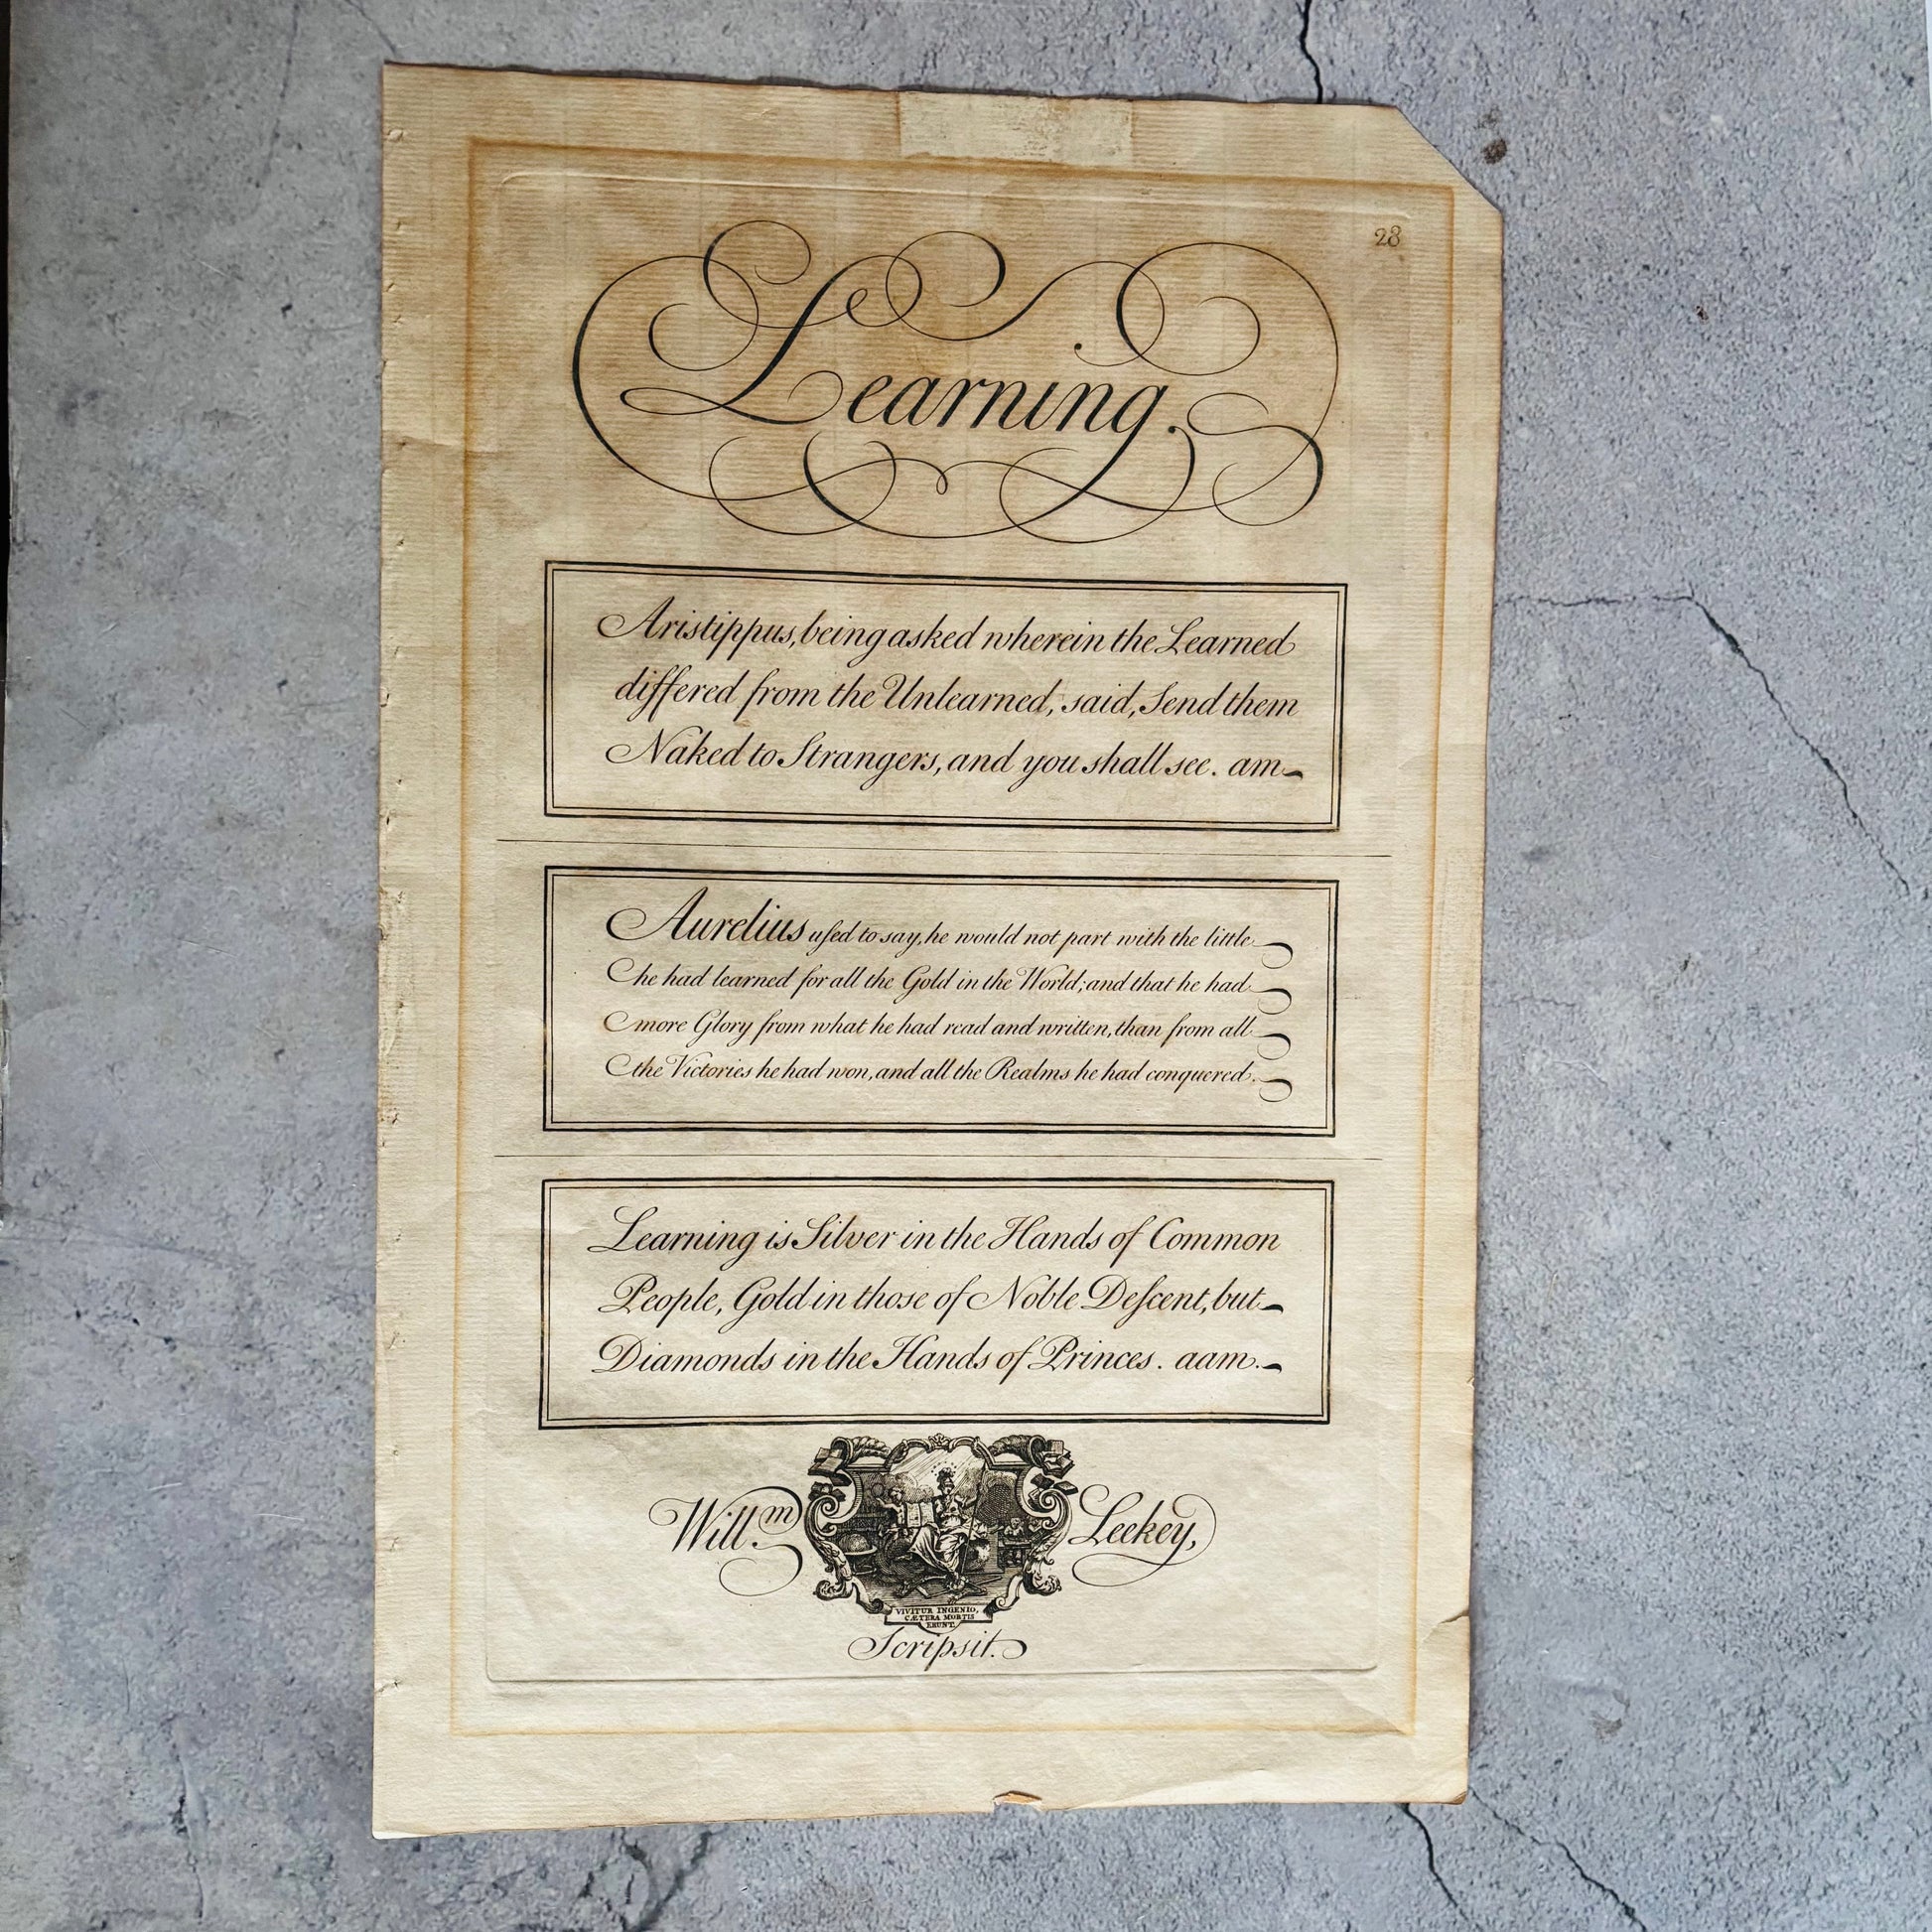 28
Learning.
Aristippus, being asked wherein the Learned
differed from the Unlearned, said, Send them
Naked to Strangers, and you shall see. am
Aurelius uſed to say, he would not part with the little
he had learned for all the Gold in the World; and that he had
more Glory from what he had read and written, than from all
the Victories he had won, and all the Realms he had conquered.
Learning is Silver in the Hands of Common
People, Gold in those of Noble Deſcent, but
Diamonds in the Hands of Princes. aam.
Will.m Leekey,
VIVITUR INGENIO,
CÆTERA MORTIS
ERUNT.
Scripsit.